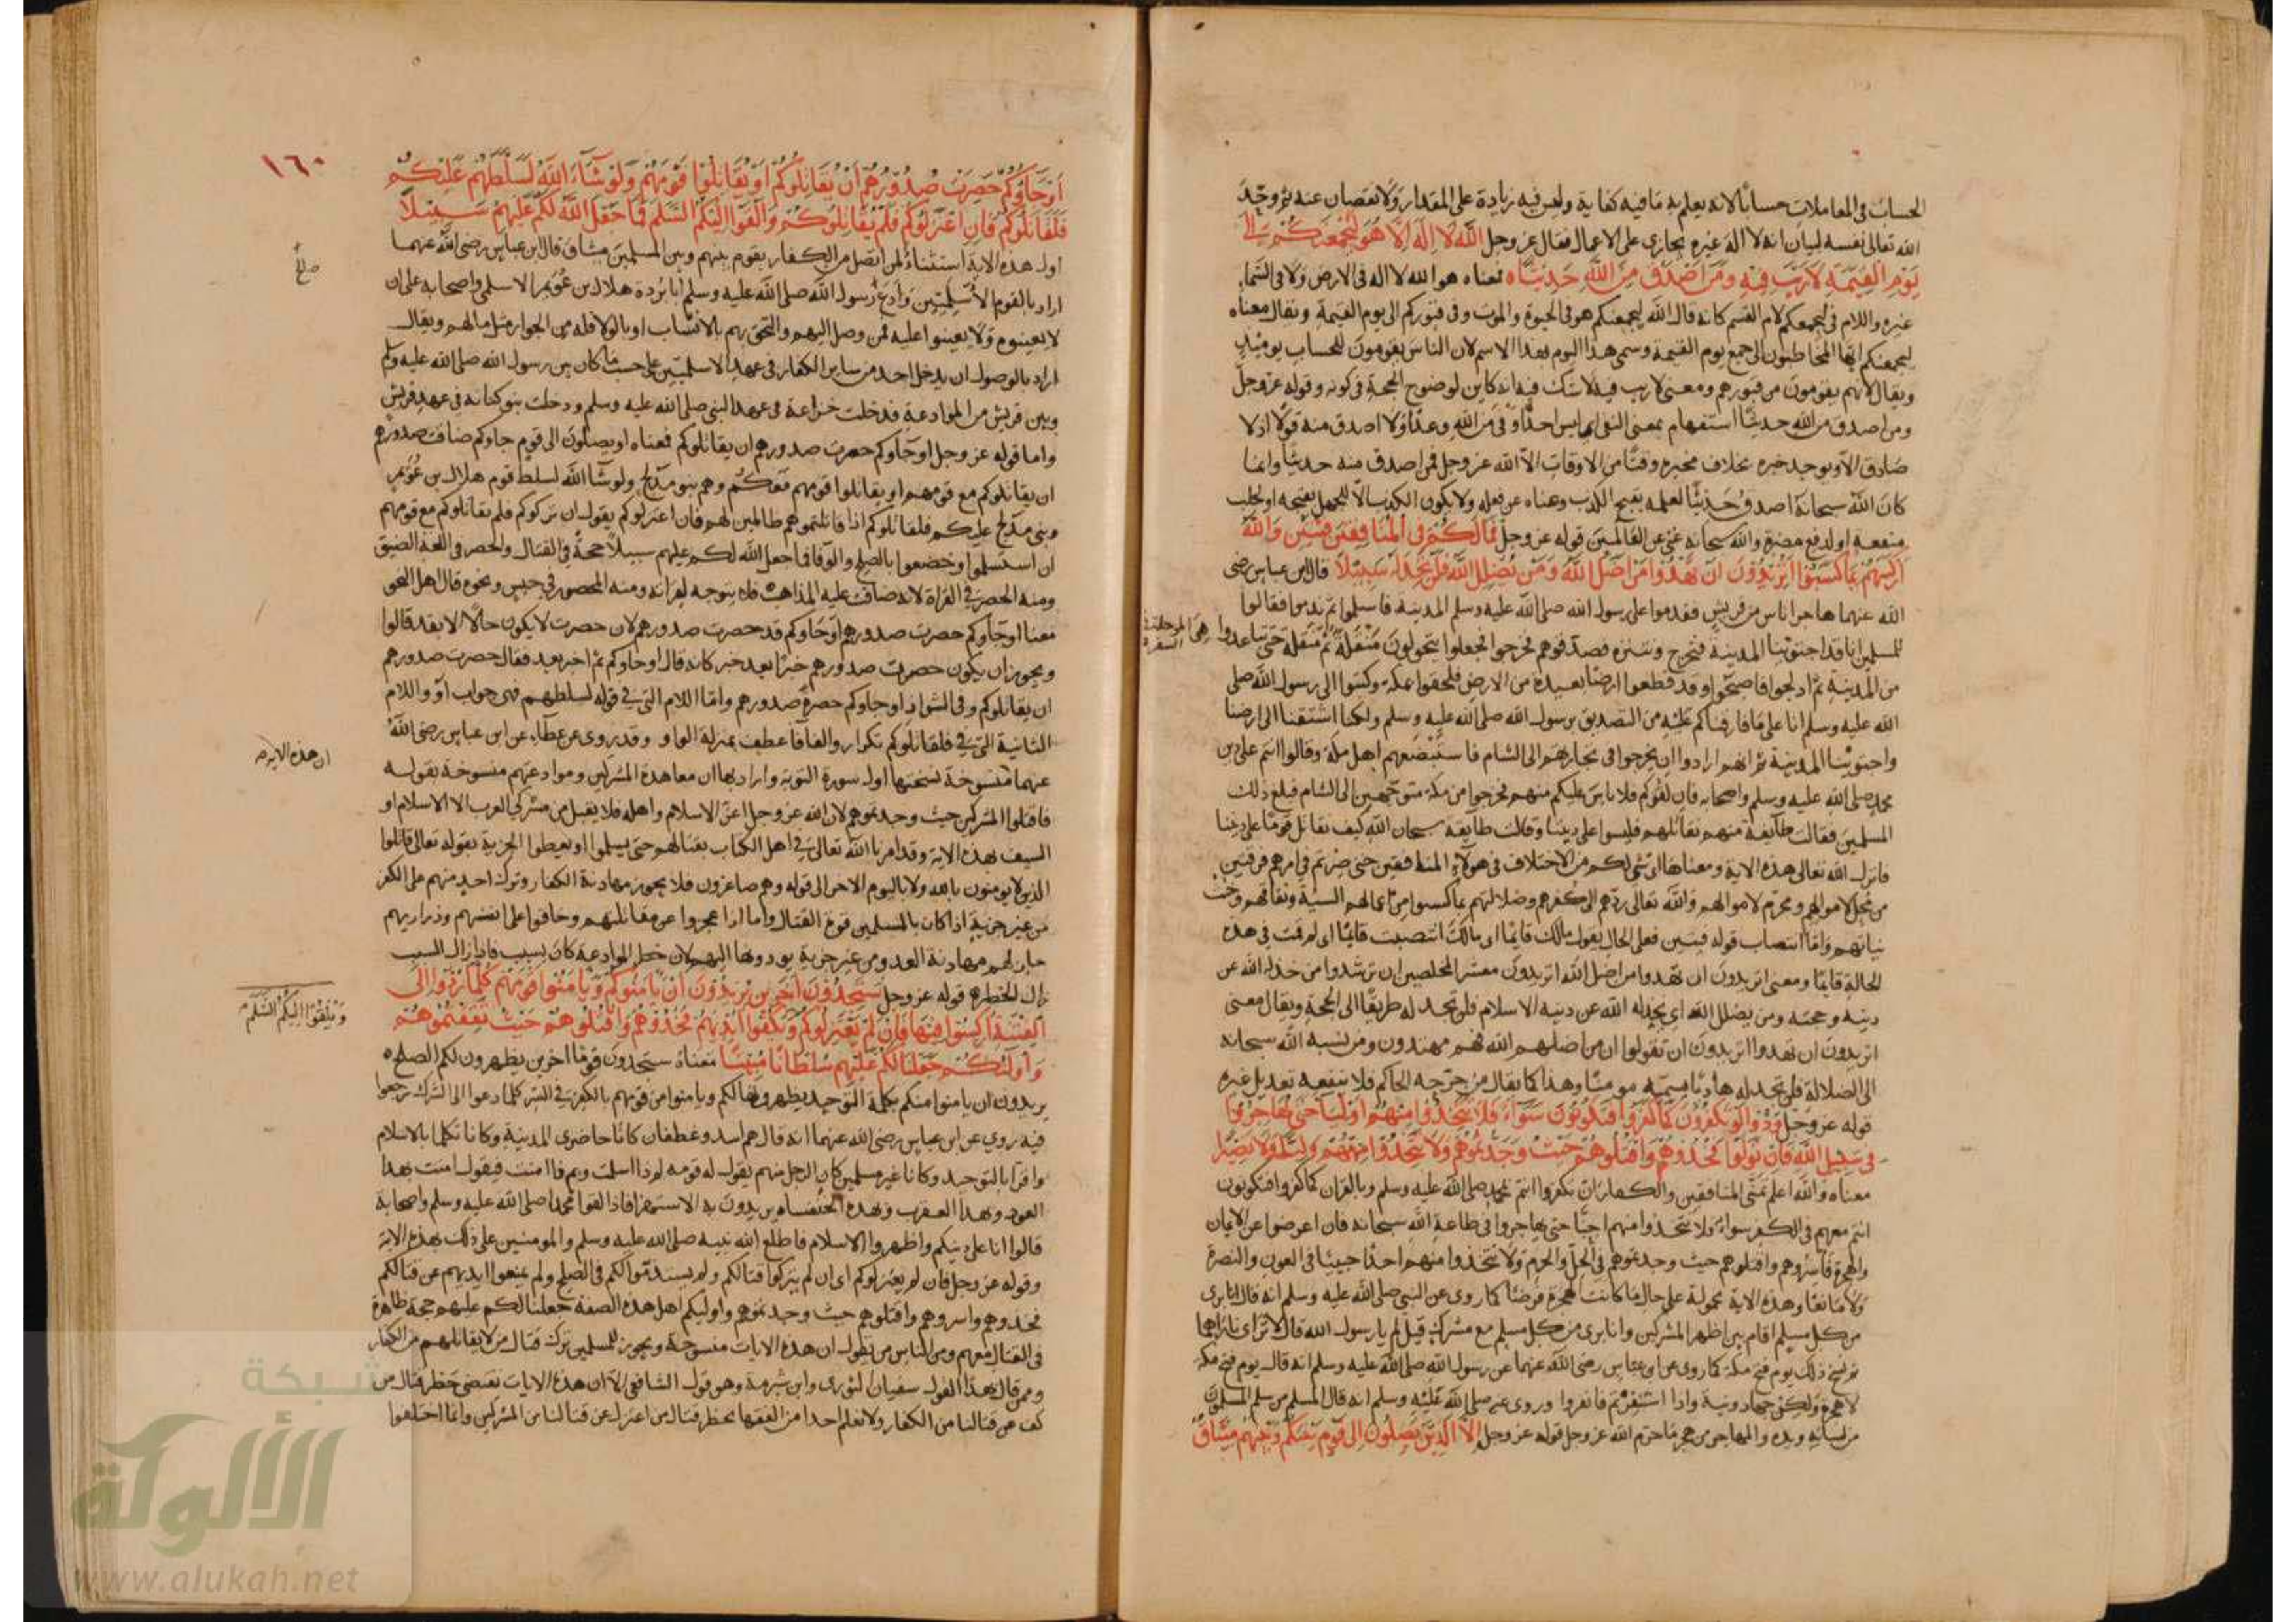 الحساب في المعاملات حسابا لانه يعلم به ما فيه كفاية وليس فيه زيادة على المقدار ولا نقصان عنه ثم وحّد
الله تعالى نفسه لبيان انه لا اله غيره يجازي على الاعمال فقال عز وجل الله لا اله الا هو ليجمعنكم الى
يوم القيمة لا ريب فيه ومن اصدق من الله حديثا ه معناه هو الله لا اله في الارض ولا في السماء
غيره واللام في ليجمعنكم لام القسم كانه قال الله ليجمعنكم هو في الحيوة والموت وفي قبوركم الى يوم القيمة ويقال معناه
ليجمعنكم ايها المخاطبون الى جمع يوم القيمة وسمي هذا اليوم بهذا الاسم لان الناس يقومون للحساب يومئذ
ويقال لانهم يقومون من قبورهم ومعنى لا ريب فيه لا شك فيه انه كاين لوضوح الحجة في كونه وقوله عز وجل
ومن اصدق من الله حديثا استفهام بمعنى النفي اي ليس احد اوفى من الله وعدا ولا اصدق منه قولا اذ لا
صادق الا ويوجد خبره بخلاف مخبره وقتا من الاوقات الا الله عز وجل فمن اصدق منه حديثا وانما
كان الله سبحانه اصدق حديثا لعلمه بقبح الكذب وغناه عن فعله ولا يكون الكذب الا للجهل بقبحه او لجلب
منفعة او لدفع مضرة والله سبحانه غني عن العالمين قوله عز وجل فما لكم في المنافقين فئتين والله
اركسهم بما كسبوا اتريدون ان تهدوا من اضل الله ومن يضلل الله فلن تجد له سبيلا قال ابن عباس رضي
الله عنهما هاجر اناس من قريش فقدموا على رسول الله صلى الله عليه وسلم المدينة فاسلموا ثم ندموا فقالوا
للمسلمين انا قد اجتوينا المدينة فنخرج ونتنزه فصدقوهم فخرجوا فجعلوا يتحولون منقلة ثم منقلة حتى تباعدوا
هي المرحلة في السفر
من المدينة ثم ادلجوا فاصبحوا وقد قطعوا ارضا بعيدة من الارض فلحقوا بمكة وكتبوا الى رسول الله صلى
الله عليه وسلم انا على ما فارقناكم عليه من التصديق برسول الله صلى الله عليه وسلم ولكنا اشتقنا الى ارضنا
واجتوينا المدينة ثم انهم ارادوا ان يخرجوا في تجارتهم الى الشام فاستبضعهم اهل مكة وقالوا انتم على دين
محمد صلى الله عليه وسلم واصحابه فان لقوكم فلا باس عليكم منهم فخرجوا من مكة متوجهين الى الشام فبلغ ذلك
المسلمين فقالت طايفة منهم نقاتلهم فليسوا على ديننا وقالت طايفة سبحان الله كيف نقاتل قوما على ديننا
فانزل الله تعالى هذه الاية ومعناها اي شي لكم من الاختلاف في هولاء المنافقين حتى صرتم في امرهم فرقتين
من محل لاموالهم ومحرم لاموالهم والله تعالى ردهم الى كفرهم وضلالتهم بما كسبوا من اعمالهم السيئة ونفاقهم وخبث
نياتهم واما انتصاب قوله فئتين فعلى الحال يقول مالك قايما اي مالك انتصبت قايما اي لم قمت في هذه
الحالة قايما ومعنى اتريدون ان تهدوا من اضل الله اتريدون معشر المخلصين ان ترشدوا من خذله الله عن
دينه وحجته ومن يضلل الله اي يخذله الله عن دينه الاسلام فلن تجد له طريقا الى الحجة ويقال معنى
اتريدون ان تهدوا اتريدون ان تقولوا ان من اضلهم الله فهم مهتدون ومن نسبه الله سبحانه
الى الضلالة فلن تجد له هاديا يسميه مومنا وهذا كما يقال من جرحه الحاكم فلا ينفعه تعديل غيره
قوله عز وجل ودوا لو تكفرون كما كفروا فتكونون سواء فلا تتخذوا منهم اوليا حتى يهاجروا
في سبيل الله فان تولوا فخذوهم واقتلوهم حيث وجدتموهم ولا تتخذوا منهم وليا ولا نصيرا
معناه والله اعلم تمنى المنافقين والكفار ان تكفروا انتم بمحمد صلى الله عليه وسلم وبالقران كما كفروا فتكونون
انتم معهم في الكفر سواء فلا تتخذوا منهم احبا حتى يهاجروا في طاعة الله سبحانه فان اعرضوا عن الايمان
والهجرة فأسروهم واقتلوهم حيث وجدتموهم في الحل والحرم ولا تتخذوا منهم احدا حبيبا في العون والنصرة
ولا مانعا وهذه الاية محمولة على حال ما كانت الهجرة فرضا كما روي عن النبي صلى الله عليه وسلم انه قال انا بري
من كل مسلم اقام بين اظهر المشركين وانا بري من كل مسلم مع مشرك قيل لم يا رسول الله قال لا تراى ناراهما
ثم نسخ ذلك يوم فتح مكة كما روي عن ابن عباس رضي الله عنهما عن رسول الله صلى الله عليه وسلم انه قال يوم فتح مكة
لا هجرة ولكن جهاد ونية واذا استنفرتم فانفروا وروي عنه صلى الله عليه وسلم انه قال المسلم من سلم المسلمون
من لسانه ويده والمهاجر من هجر ما حرم الله عز وجل قوله عز وجل الا الذين يصلون الى قوم بينكم وبينهم ميثاق
١٦٠
او جاؤكم حصرت صدورهم ان يقاتلوكم او يقاتلوا قومهم ولو شاء الله لسلطهم عليكم
فلقاتلوكم فان اعتزلوكم فلم يقاتلوكم والقوا اليكم السلم فما جعل الله لكم عليهم سبيلا
اول هذه الاية استثناء لمن اتصل من الكفار بقوم بينهم وبين المسلمين ميثاق قال ابن عباس رضي الله عنهما
صلح
اراد بالقوم الاسلميين وادع رسول الله صلى الله عليه وسلم ابا بردة هلال بن عويمر الاسلمي واصحابه على ان
لا يعينوه ولا يعينوا عليه فمن وصل اليهم والتحق بهم بالانتساب او بالولا فله من الجوار مثل ما لهم ويقال
اراد بالوصول ان يدخل احد من ساير الكفار في عهد الاسلميين على حسب ما كان بين رسول الله صلى الله عليه وسلم
وبين قريش من الموادعة فدخلت خزاعة في عهد النبي صلى الله عليه وسلم ودخلت بنو كنانة في عهد قريش
واما قوله عز وجل او جاؤكم حصرت صدورهم ان يقاتلوكم فمعناه او يصلون الى قوم جاوكم ضاقت صدورهم
ان يقاتلوكم مع قومهم او يقاتلوا قومهم معكم وهم بنو مدلج ولو شا الله لسلط قوم هلال بن عويمر
وبني مدلج عليكم فلقاتلوكم اذا قاتلتموهم ظالمين لهم فان اعتزلوكم يقول ان تركوكم فلم يقاتلوكم مع قومهم
ان استسلموا وخضعوا بالصلح والوفا فما جعل الله لكم عليهم سبيلا حجة في القتال والحصر في اللغة الضيق
ومنه الحصر في القراة لانه ضاقت عليه المذاهب فلم يتوجه لقراته ومنه المحصور في حبس ونحوه قال اهل النحو
معنا او جاوكم حصرت صدورهم او جاوكم قد حصرت صدورهم لان حصرت لا يكون حالا الا بقد قالوا
ويجوز ان يكون حصرت صدورهم خبرا بعد خبر كانه قال او جاوكم ثم اخبر بعد فقال حصرت صدورهم
ان يقاتلوكم وفي الشواذ او جاوكم حصرة صدورهم واما اللام التي في قوله لسلطهم فهي جواب لو واللام
الثانية التي في فلقاتلوكم تكرار والفا فا عطف بمنزلة الواو وقد روي عن عطاء عن ابن عباس رضي الله
ان هذه الاية
عنهما منسوخة نسختها اول سورة التوبة وارادبها ان معاهدة المشركين وموادعتهم منسوخة بقوله
فاقتلوا المشركين حيث وجدتموهم لان الله عز وجل اعز الاسلام واهله فلا يقبل من مشركي العرب الا الاسلام او
السيف بهذه الاية وقد امرنا الله تعالى في اهل الكتاب بقتالهم حتى يسلموا او يعطوا الجزية بقوله تعالى قاتلوا
الذين لا يومنون بالله ولا باليوم الاخر الى قوله وهم صاغرون فلا يجوز مهادنة الكفار وترك احد منهم على الكفر
من غير جزية اذا كان بالمسلمين قوة القتال واما اذا عجزوا عن مقاتلتهم وخافوا على انفسهم وذراريهم
جاز لهم مهادنة العدو من غير جزية يودونها اليهم لان حظر الموادعة كان بسبب فاذا زال السبب
زال الحظر ه قوله عز وجل ستجدون اخرين يريدون ان يامنوكم ويامنوا قومهم كلما ردوا الى
الفتنة اركسوا فيها فان لم يعتزلوكم ويكفوا ايديهم فخذوهم واقتلوهم حيث ثقفتموهم
ويلقوا اليكم السلم
واولئكم جعلنا لكم عليهم سلطانا مبينا معناه ستجدون قوما اخرين يظهرون لكم الصلح ه
يريدون ان يامنوا منكم بكلمة التوحيد يظهرونها لكم ويامنوا من قومهم بالكفر في السر كلما دعوا الى الشرك رجعوا
فيه روي عن ابن عباس رضي الله عنهما انه قال هم اسد وغطفان كانا حاضري المدينة وكانا تكلما بالاسلام
واقرا بالتوحيد وكانا غير مسلمين كان الرجل منهم يقول له قومه لم ذا اسلمت وبم ذا امنت فيقول امنت بهذا
العود وبهذا العقرب وبهذه الخنفساه يريدون به الاستهزا فاذا لقوا محمدا صلى الله عليه وسلم واصحابه
قالوا انا على دينكم واظهروا الاسلام فاطلع الله نبيه صلى الله عليه وسلم والمومنين على ذلك بهذه الاية
وقوله عز وجل فان لم يعتزلوكم اي ان لم يتركوا قتالكم ولم يستدموا لكم في الصلح ولم يمنعوا ايديهم عن قتالكم
فخذوهم واسروهم واقتلوهم حيث وجدتموهم واوليكم اهل هذه الصفة جعلنا لكم عليهم حجة ظاهرة
في القتال معهم ومن الناس من يقول ان هذه الايات منسوخة ويجوز للمسلمين ترك قتال من لا يقاتلهم من الكفار
وممن قال بهذا القول سفيان الثوري وابن شبرمة وهو قول الشافعي الا ان هذه الايات تقتضي حظر قتال من
كف عن قتالنا من الكفار ولا نعلم احدا من الفقها يحظر قتال من اعتزل عن قتالنا من المشركين وانما اختلفوا
شبكة
الألوكة
www.alukah.net